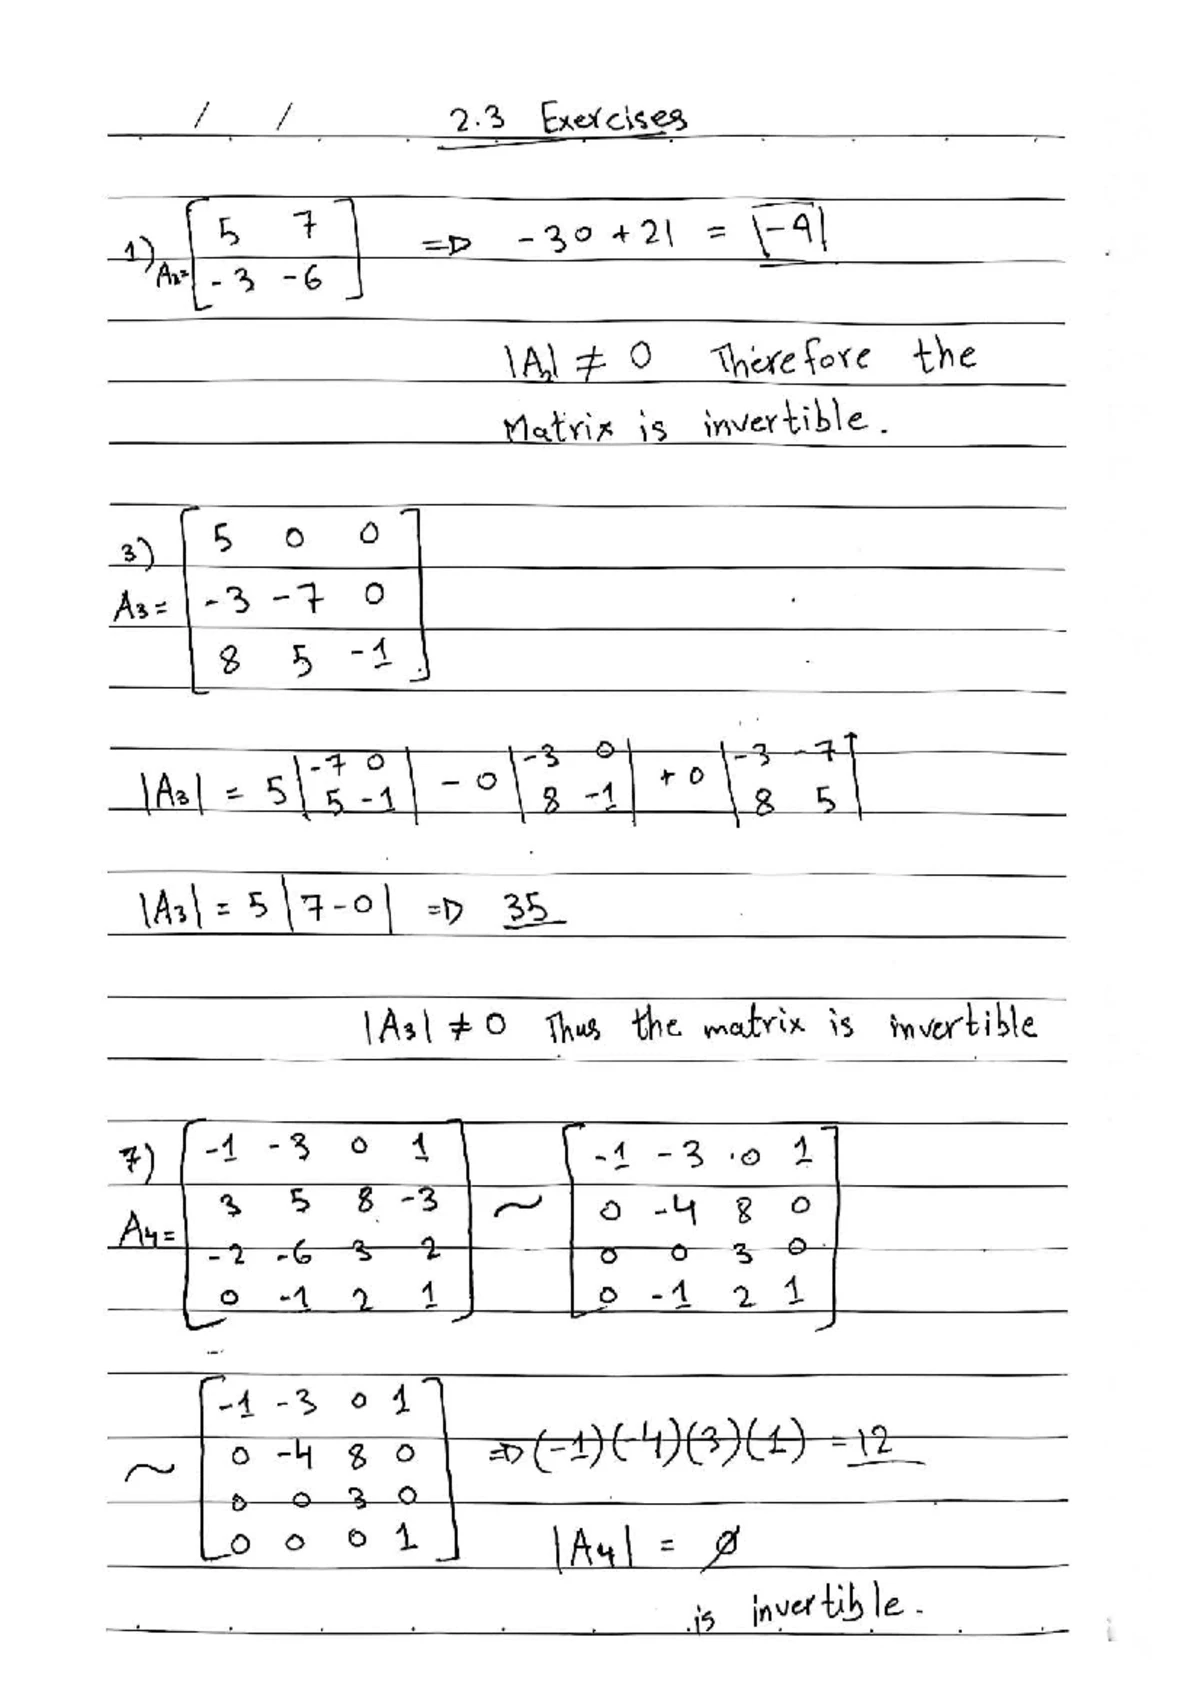 / / 2.3 Exercises
1) A₂= [5 7; -3 -6] =D -30 + 21 = |-9|
|A₂| ≠ 0 Therefore the
Matrix is invertible.
3) A3 = [5 0 0; -3 -7 0; 8 5 -1]
|A3| = 5 |-7 0; 5 -1| - 0 |-3 0; 8 -1| + 0 |-3 -7; 8 5|
|A3| = 5 |7-0| =D 35
|A3| ≠ 0 Thus the matrix is invertible
7) A4= [-1 -3 0 1; 3 5 8 -3; -2 -6 3 2; 0 -1 2 1] ~ [-1 -3 0 1; 0 -4 8 0; 0 0 3 0; 0 -1 2 1]
~ [-1 -3 0 1; 0 -4 8 0; 0 0 3 0; 0 0 0 1] =D (-1)(-4)(3)(1) = 12
|A4| = Ø
is invertible.